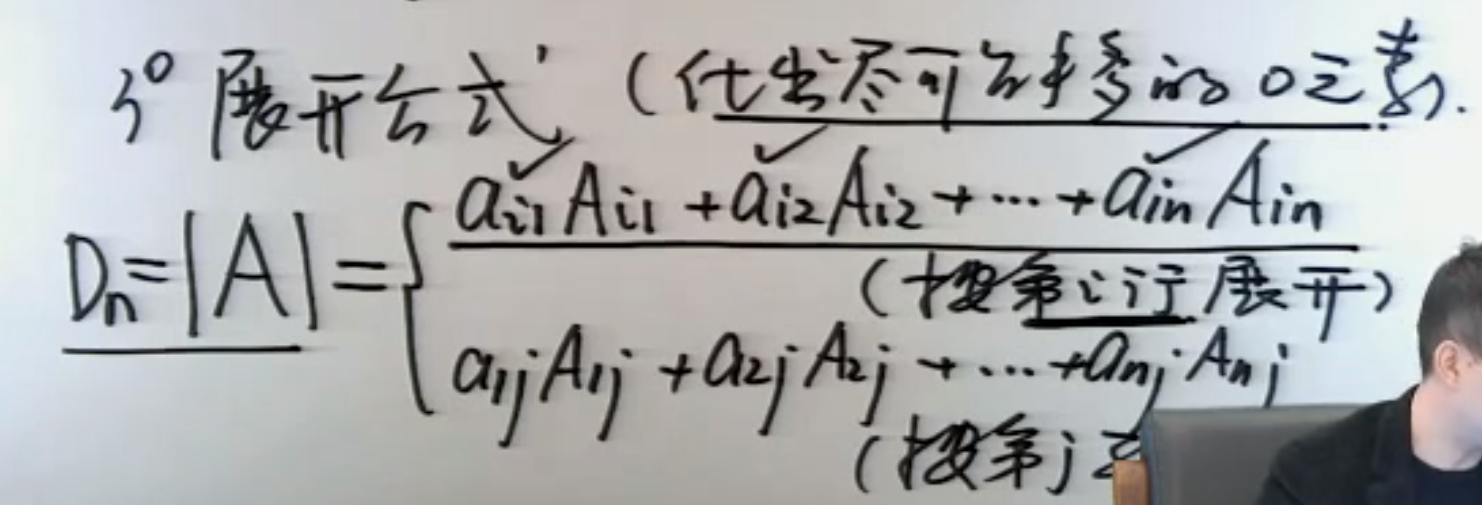 3° 展开公式 (化出尽可能多的0元素).
Dn=|A|={ ai1Ai1+ai2Ai2+…+ainAin
(按第i行展开)
a1jA1j+a2jA2j+…+anjAnj
(按第j